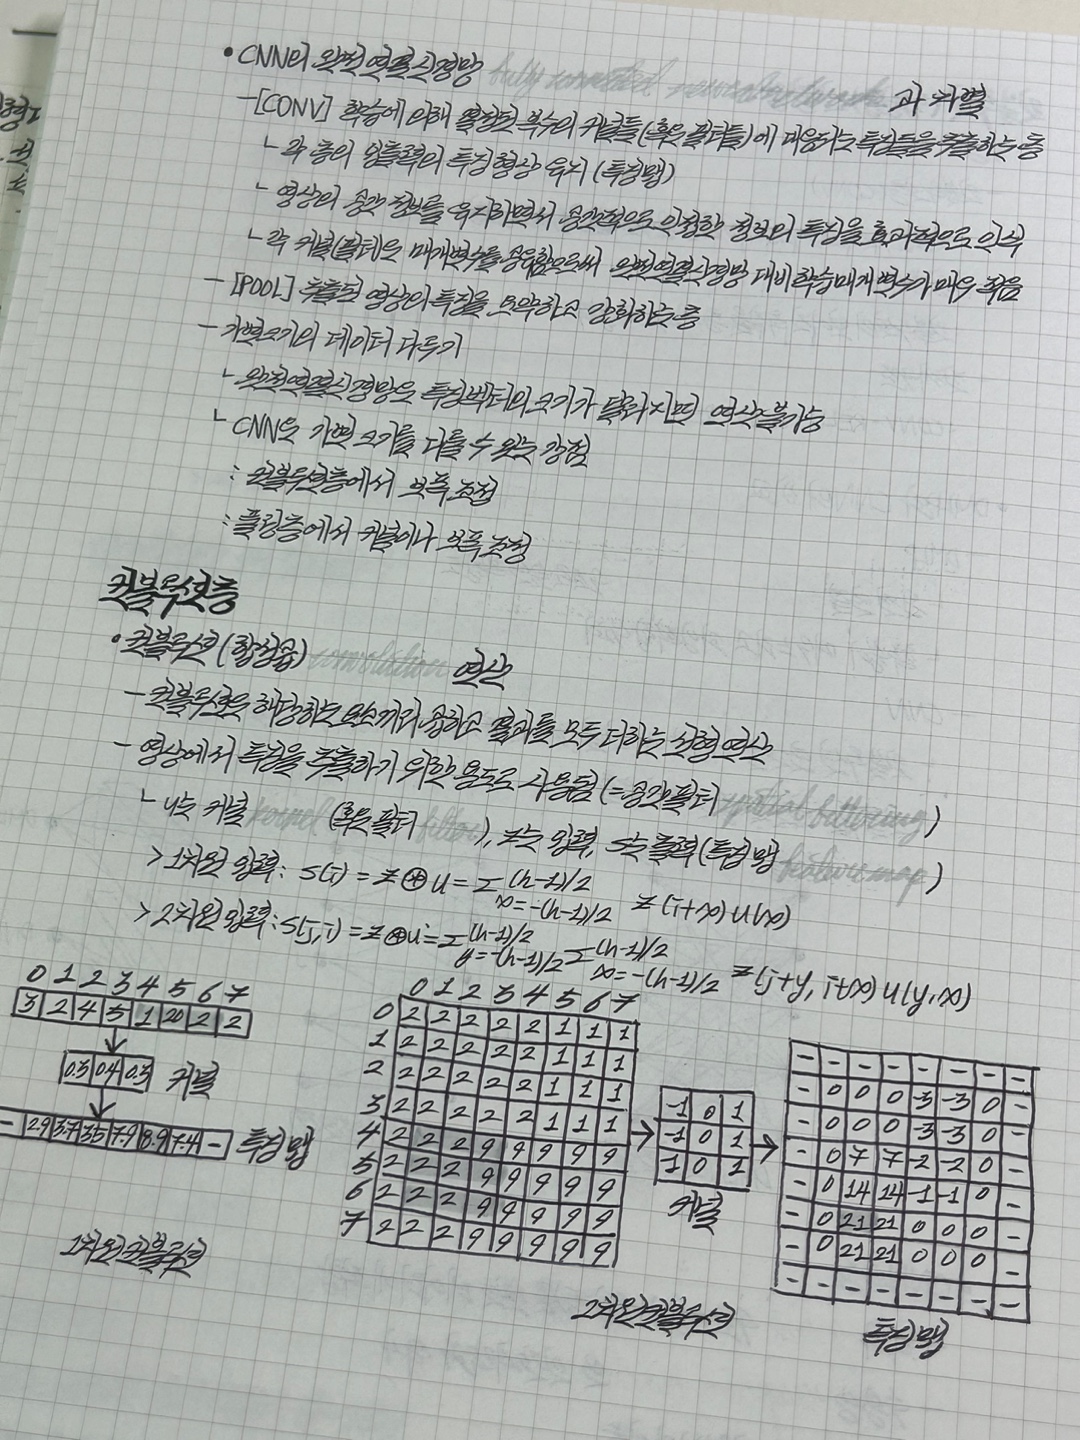 • CNN의 완전연결신경망 fully connected neural network 과 차별
—[CONV] 학습에 의해 결정된 복수의 커널들(혹은 필터들)에 대응되는 특징들을 추출하는 층
└ 각 층의 입출력의 특징형상 유지 (특징맵)
└ 영상의 공간 정보를 유지하면서 공간적으로 인접한 정보의 특징을 효과적으로 인식
└ 각 커널(필터)은 매개변수를 공유함으로써 완전연결신경망 대비 학습매개변수가 매우 적음
— [POOL] 추출된 영상의 특징을 요약하고 강화하는 층
— 가변크기의 데이터 다루기
└ 완전연결신경망은 특징벡터의 크기가 달라지면 연산불가능
└ CNN은 가변 크기를 다룰 수 있는 강점
: 컨볼루션층에서 보폭 조정
: 풀링층에서 커널이나 보폭 조정
컨볼루션층
• 컨볼루션(합성곱) convolution 연산
— 컨볼루션은 해당하는 요소끼리 곱하고 결과를 모두 더하는 선형 연산
— 영상에서 특징을 추출하기 위한 용도로 사용됨 (=공간필터 spatial filtering)
└ u는 커널 kernel (혹은 필터 filter), z는 입력, s는 출력(특징 맵 feature map)
> 1차원 입력: s(i) = z ⊛ u = Σ (h-1)/2 x=-(h-1)/2 z(i+x)u(x)
> 2차원 입력: s(j,i) = z ⊛ u = Σ (h-1)/2 y=-(h-1)/2 Σ (h-1)/2 x=-(h-1)/2 z(j+y, i+x)u(y,x)
0 1 2 3 4 5 6 7
3 2 4 5 1 20 2 2
0.3 0.4 0.3 커널
- 2.9 3.7 3.5 7.9 8.9 7.4 - 특징 맵
1차원 컨볼루션
0 1 2 3 4 5 6 7
0 2 2 2 2 2 1 1 1
1 2 2 2 2 2 1 1 1
2 2 2 2 2 2 1 1 1
3 2 2 2 2 2 1 1 1
4 2 2 2 9 9 9 9 9
5 2 2 2 9 9 9 9 9
6 2 2 2 9 9 9 9 9
7 2 2 2 9 9 9 9 9
-1 0 1
-1 0 1
1 0 1
커널
- - - - - - - -
- 0 0 0 -3 -3 0 -
- 0 0 0 -3 -3 0 -
- 0 7 7 -2 -2 0 -
- 0 14 14 -1 -1 0 -
- 0 21 21 0 0 0 -
- 0 21 21 0 0 0 -
- - - - - - - -
2차원 컨볼루션
특징 맵